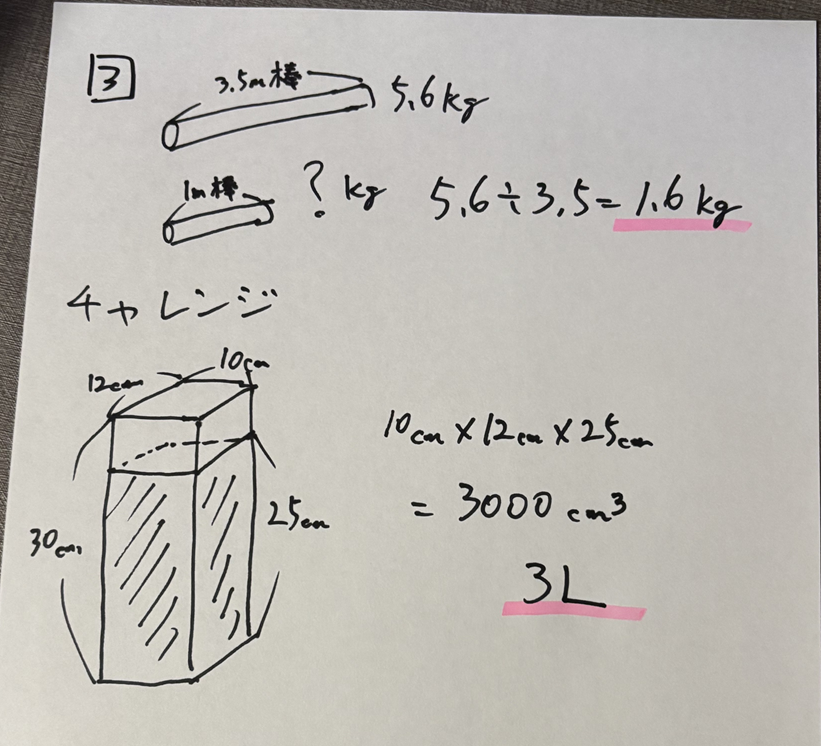 3
3.5m棒 5.6kg
1m棒 ? kg 5.6÷3.5=1.6kg
チャレンジ
10cm
12cm
10cm×12cm×25cm
=3000cm³
25cm
30cm
3L